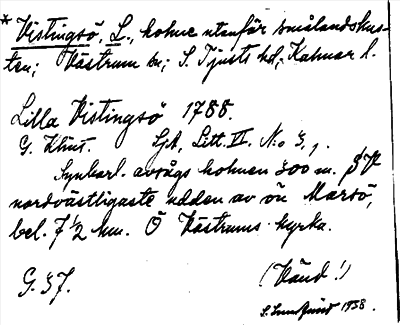 * Vistingsö, L., holme utanför smålandskus-
ten; Västrum sn; S. Tjusts hd; Kalmar l.
Lilla Vistingsö 1788.
G. Klint. Sjk, Litt. VI. N:o 3,.
Synbarl. avsågs holmen 300 m.
nordvästligaste udden av ön Marsö,
bel. 7 1/2 km. Ö Västrums kyrka.
G. 37. (Vänd!)
1938.